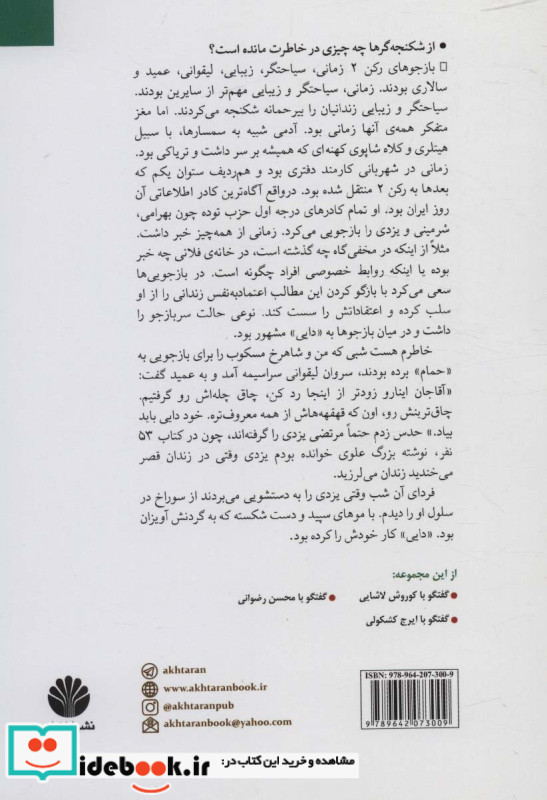 ● از شکنجه‌گرها چه چیزی در خاطرت مانده است؟
□ بازجوهای رکن ۲ زمانی، سیاحتگر، زیبایی، لیقوانی، عمید و
سالاری بودند. زمانی، سیاحتگر و زیبایی مهم‌تر از سایرین بودند.
سیاحتگر و زیبایی زندانیان را بیرحمانه شکنجه می‌کردند. اما مغز
متفکر همه‌ی آنها زمانی بود. آدمی شبیه به سمسارها، با سبیل
هیتلری و کلاه شاپوی کهنه‌ای که همیشه بر سر داشت و تریاکی بود.
زمانی در شهربانی کارمند دفتری بود و هم‌ردیف ستوان یکم که
بعدها به رکن ۲ منتقل شده بود. درواقع آگاه‌ترین کادر اطلاعاتی آن
روز ایران بود. او تمام کادرهای درجه اول حزب توده چون بهرامی،
شرمینی و یزدی را بازجویی می‌کرد. زمانی از همه‌چیز خبر داشت.
مثلاً از اینکه در مخفی‌گاه چه گذشته است، در خانه‌ی فلانی چه خبر
بوده یا اینکه روابط خصوصی افراد چگونه است. در بازجویی‌ها
سعی می‌کرد با بازگو کردن این مطالب اعتمادبه‌نفس زندانی را از او
سلب کرده و اعتقاداتش را سست کند. نوعی حالت سربازجو را
داشت و در میان بازجوها به «دایی» مشهور بود.
خاطرم هست شبی که من و شاهرخ مسکوب را برای بازجویی به
«حمام» برده بودند، سروان لیقوانی سراسیمه آمد و به عمید گفت:
«آقاجان اینارو زودتر از اینجا رد کن، چاق چله‌اش رو گرفتیم.
چاق‌ترینش رو، اون که قهقهه‌هاش از همه معروف‌تره. خود دایی باید
بیاد.» حدس زدم حتماً مرتضی یزدی را گرفته‌اند، چون در کتاب ۵۳
نفر، نوشته بزرگ علوی خوانده بودم یزدی وقتی در زندان قصر
می‌خندید زندان می‌لرزید.
فردای آن شب وقتی یزدی را به دستشویی می‌بردند از سوراخ در
سلول او را دیدم. با موهای سپید و دست شکسته که به گردنش آویزان
بود. «دایی» کار خودش را کرده بود.
از این مجموعه:
● گفتگو با کوروش لاشایی ● گفتگو با محسن رضوانی
● گفتگو با ایرج کشکولی
akhtaran
www.akhtaranbook.ir
@akhtaranpub
akhtaranbook@yahoo.com
ISBN: 978-964-207-300-9
9 789642 073009
نشر
مشاهده و خرید این کتاب در:
idebook.ir